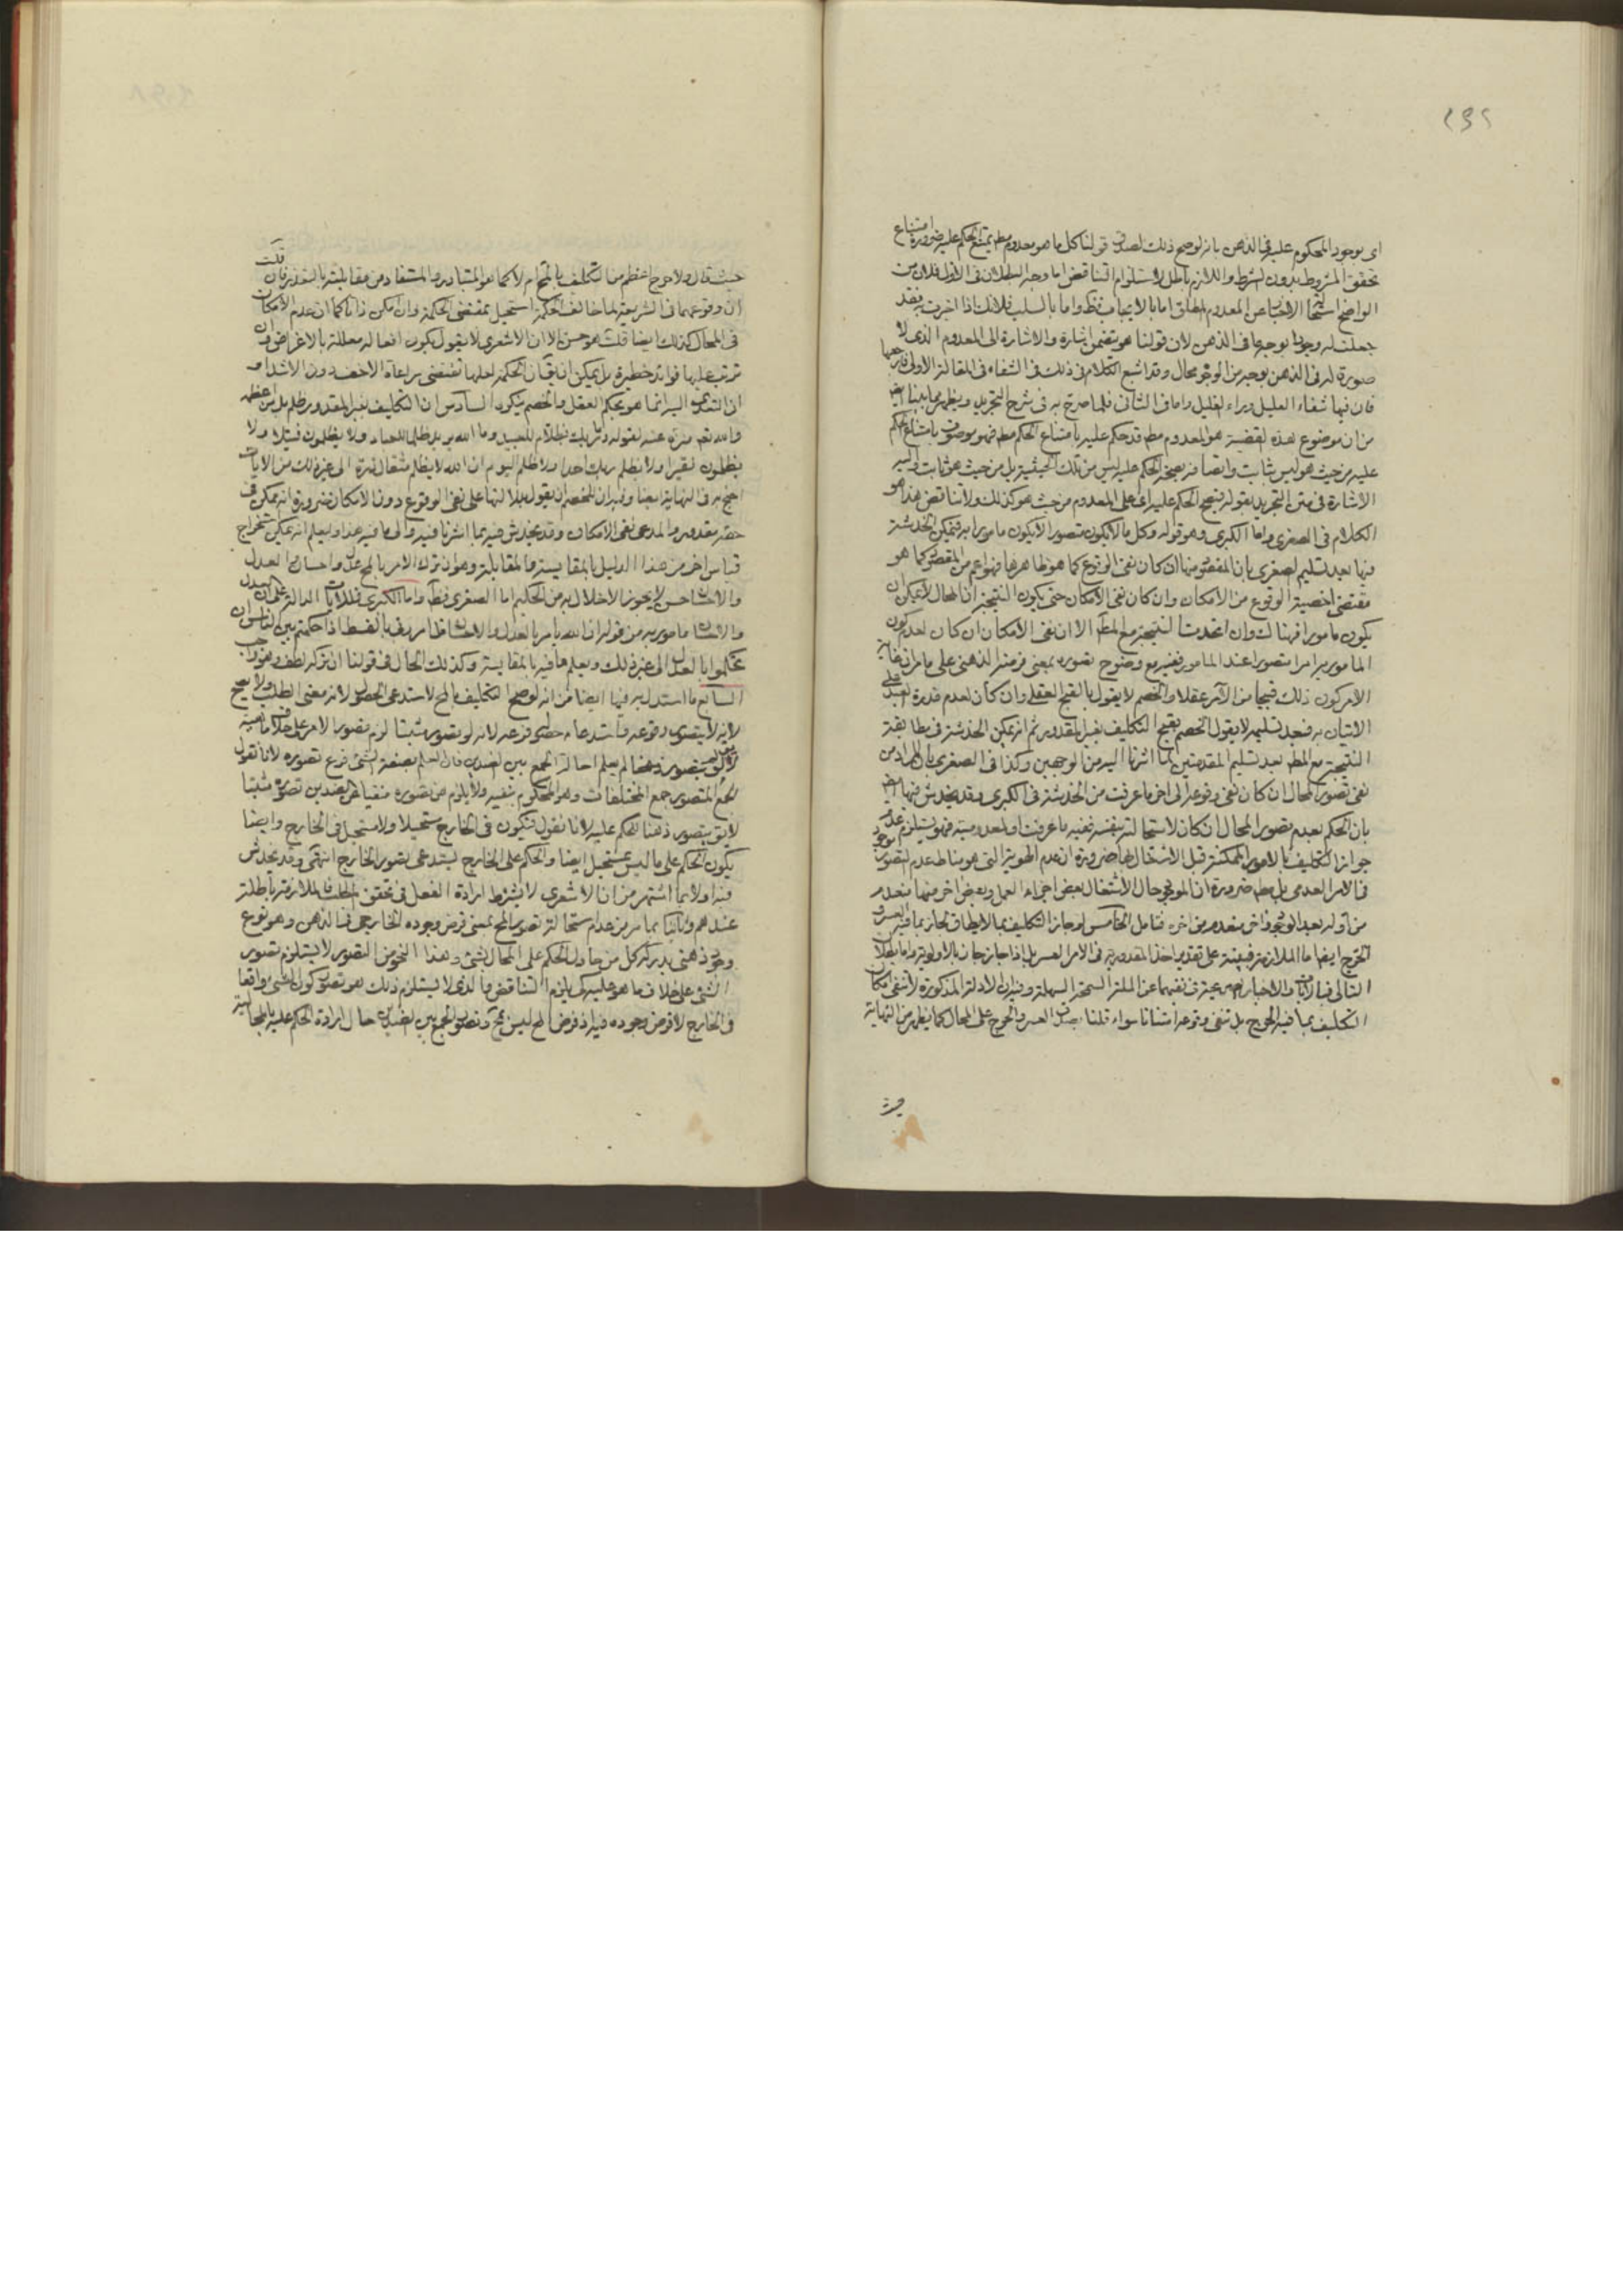 اى بوجود المحكوم عليه فى الذهن بانه لو صح ذلك لصدق قولنا كل ما هو معدوم مطم يمتنع الحكم عليه ضرورة امتناع
تحقق المشروط بدون الشرط واللازم باطل لاستلزام التناقض اما وجه البطلان فى الاول فلان من
الواضح الاخبار عن المعدوم المطلق اما بالايجاب فظ واما بالسلب فلانك اذا اخبرت فقد
جعلت له وجودا بوجه ما فى الذهن لان قولنا هو يتضمن اشارة والاشارة الى المعدوم الذى لا
صورة له فى الذهن بوجه من الوجوه محال وقد اشبع الكلام فى ذلك فى الشفاء فى المقالة الاولى فارجعها
فان فيها شفاء العليل ورواء الغليل واما فى الثانى فلما صرح به فى شرح التجريد ويظهر مما بينا ايضا
من ان موضوع هذه القضية هو المعدوم مطم قد حكم عليه بامتناع الحكم مطم فهو موصوف بامتناع الحكم
عليه من حيث هو ليس بثابت واتصافه بصحة الحكم عليه ليس من تلك الحيثية بل من حيث هو ثابت واليه
الاشارة فى متن التجريد بقوله فيصح الحكم عليه اى على المعدوم من حيث هو كذلك ولا تناقض هذا هو
الكلام فى الصغرى واما الكبرى وهو قوله وكل ما لا يكون متصورا لا يكون مامورا به فيمكن الخدشة
فيها بعد تسليم الصغرى بان المقصود منها ان كان نفى الوقوع كما هو ظاهرها فهو اعم من المقصود كما هو
مقتضى اخصية الوقوع من الامكان وان كان نفى الامكان حتى يكون النتيجة ان المحال لا يمكن ان
يكون مامورا فهنالك وان اتحدت النتيجة مع المطم الا ان نفى الامكان ان كان لعدم كون
المامور به امرا متصورا عند المامور ففيه مع وضوح تصوره بمعنى فرضه الذهنى على ما مر ان غاية
الامر كون ذلك قبيحا من الآمر عقلا والخصم لا يقول بالقبح العقلى وان كان لعدم قدرة العبد على
الاتيان به فبعد تسليمه لا يقول الخصم بقبح التكليف بغير المقدور ثم انه يمكن الخدشة فى مطابقة
النتيجة مع المطم بعد تسليم المقدمتين لما اشرنا اليه من الوجهين وكذا فى الصغرى بان المراد من
نفى تصور المحال ان كان نفى وقوعه الى اخر ما عرفت من الخدشة فى الكبرى وقد يخدش فيها ايضا
بان الحكم بعدم تصور المحال ان كان لاستحالته بنفسه ففيه ما عرفت او لمعدوميته فهو يستلزم عدم
جواز التكليف بالامور الممكنة قبل الاشتغال بها ضرورة ان عدم الهوية التى هو مناط عدم التصور موجود
فى الامر العدمى بل مطم ضرورة ان الموجود حال الاشتغال بعض اجزاء العمل وبعض اخر منها منعدم
من اوله بعد الوجود واخر منعدم من اخره فتامل الخامس لو جاز التكليف بما لا يطاق لجاز بما فيه العسر و
الحرج ايضا اما الملازمة فبينة على تقدير اخذ المقدورية فى الامر العسر بل اذا جاز جاز بالاولوية واما بطلان
التالى فبالايات والاخبار فى نفيهما عن الملة السمحة السهلة وفيه ان الادلة المذكورة لا تنفى امكان
التكليف بما فيه الحرج بل تنفى وقوعه امتنانا سواء قلنا بصدق العسر والحرج على المحال كما يظهر من النهاية
حيث
حيث قال ولا حرج اعظم من التكليف بالمحال ام لا كما هو المتبادر والمستفاد من مقابلته بالتعذر فان قلت
ان وقوعهما فى الشريعة لما خالف الحكمة استحيل بمقتضى الحكمة وان امكن ذاتا كما ان عدم الامكان
فى المحال كذلك ايضا قلت هو حسن الا ان الاشعرى لا يقول بكون افعاله معللة بالاغراض وان
ترتب عليها فوائد خطيرة بل يمكن ان يقال ان الحكمة لعلها تقتضى مراعاة الاخف دون الاشد او
ان التعدى اليه انما هو بحكم العقل والخصم ينكره السادس ان التكليف بغير المقدور ظلم بل من اعظمه
والله تعم منزه عنه لقوله وما ربك بظلام للعبيد وما الله يريد ظلما للعباد ولا يظلمون فتيلا ولا
يظلمون نقيرا ولا يظلم ربك احدا ولا ظلم اليوم ان الله لا يظلم مثقال ذرة الى غير ذلك من الايات
احتج به فى النهاية ايضا وفيه ان للخصم ان يقول بدلالتها على نفى الوقوع دون الامكان ضرورة انه ممكن فى
حقه مقدور والمدعى نفى الامكان وقد يخدش فيه بما اشرنا فيه وفى ما فيه هذا وليعلم انه يمكن استخراج
قياس اخر من هذا الدليل بالمقايسة والمقابلة وهو ان ترك الامر بالمحال عدل واحسان والعدل
والاحسان حسن لا يجوز الاخلال به من الحكيم اما الصغرى فظ واما الكبرى فللايات الدالة على ان العدل
والاحسان مامور به من قوله ان الله يامر بالعدل والاحسان بالقسط اذا حكمتم بين الناس ان
تحكموا بالعدل الى غير ذلك ويعلم ما فيه بالمقايسة وكذلك الحال فى قولنا ان تركه لطف وهو واجب
السابع ما استدل به فيها ايضا من انه لو صح التكليف بالمحال لاستدعى الحصول لانه معنى الطلب ولا يصح
لانه لا يتصور وقوعه واستدعاء حصوله فرعه لانه لو تصور مثبتا لزم تصور الامر على خلاف ماهيته
لا يقال لو لم يتصور ذهنا لم يعلم احالة الجمع بين الضدين فان العلم بصفة الشئ فرع تصوره لانا نقول
الجمع المتصور جمع المختلفات وهو المحكوم بنفيه ولا يلزم من تصوره منفيا عن الضدين تصوره مثبتا
لا يقال يتصور ذهنا للحكم عليه لانا نقول فيكون فى الخارج مستحيلا ولا مستحيل فى الخارج وايضا
يكون الحكم على ما ليس بمستحيل ايضا والحكم على الخارج يستدعى تصور الخارج انتهى وقد يخدش
فيه اولا بما اشتهر من ان الاشعرى لا يشترط ارادة الفعل فى تحقق الطلب فالملازمة باطلة
عندهم وثانيا بما مر من عدم استحالة تصور المحال بمعنى فرض وجوده الخارجى فى الذهن وهو نوع
وجود ذهنى يدركه كل من حاول الحكم على المحال بشئ وهذا النحو من التصور لا يستلزم تصور
الشئ على خلاف ما هو عليه كى يلزم التناقض فالذى لا يستلزم ذلك هو تصور كون الشئ واقعا
فى الخارج لا فرض وجوده فيه اذ فرض المحال ليس بمحال وتصور الجمع بين الضدين حال ارادة الحكم عليه بالمحالية